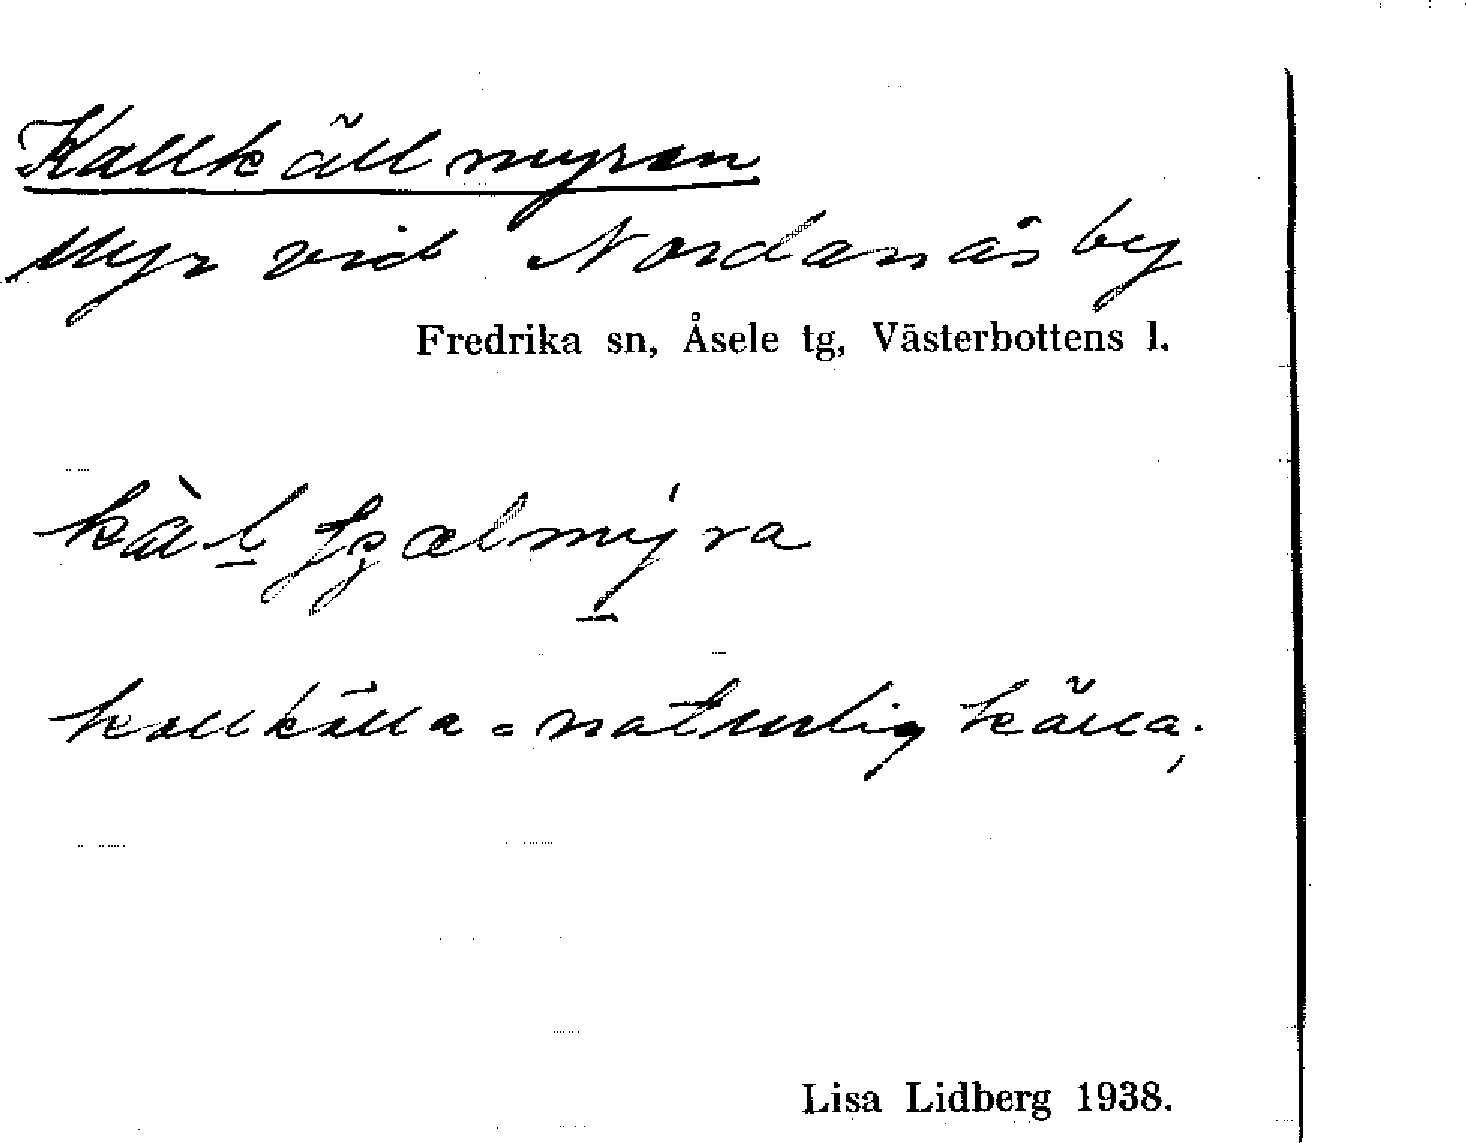 Kallkällmyren
Myr vid Nordanås by
Fredrika sn, Åsele tg, Västerbottens l.
kallkälla = naturlig källa.
Lisa Lidberg 1938.